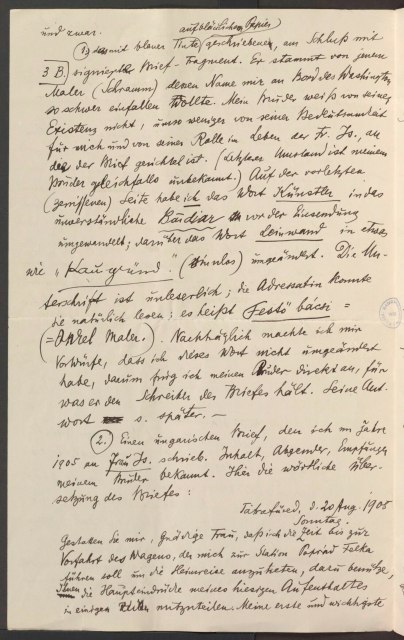 und zwar.
auf bläulichem Papier
1.) den mit blauer Tinte geschriebenen, am Schluß mit
3 B. signierten Brief-Fragment. Er stammt von jenem
Maler (Schramm) dessen Name mir an Bord des Washington
so schwer einfallen wollte. Mein Bruder weiß von seiner
Existenz nicht, umso weniger von seiner Bedeutsamkeit
für mich und von seiner Rolle im Leben der Fr. Js., an
die der Brief gerichtet ist. (Letzterer Umstand ist meinem
Bruder gleichfalls unbekannt.) Auf der vorletzten
(zerrissenen) Seite habe ich das Wort Künstler in das
unverständliche Badar vor der Einsendung
umgewandelt; darüber das Wort Leinwand in etwas
wie "Haugründ" (sinnlos) umgeändert. Die Un-
terschrift ist unleserlich; die Adressatin konnte
sie natürlich lesen; es heißt Festö bácsi =
(= Onkel Maler.). Nachträglich machte ich mir
Vorwürfe, dass ich dieses Wort nicht umgeändert
habe, darum frug ich meinen Bruder direkt an, für
was er den Schreiber des Briefes hält. Seine Ant-
wort s. später. —
2. Einen ungarischen Brief, den ich im Jahre
1905 an Frau Js. schrieb. Inhalt, Absender, Empfänger
meinem Bruder bekannt. Hier die wörtliche Über-
setzung des Briefes:
Tatrafüred, d. 20 Aug. 1905
Sonntag.
Gestatten Sie mir, Gnädige Frau, daß ich die Zeit bis zur
Vorfahrt des Wagens, der mich zur Station Poprad Felka
führen soll um die Heimreise anzutreten, dazu benütze,
Ihnen die Haupteindrücke meines hiesigen Aufenthaltes
in einigen mitzuteilen. Meine erste und wichtigste